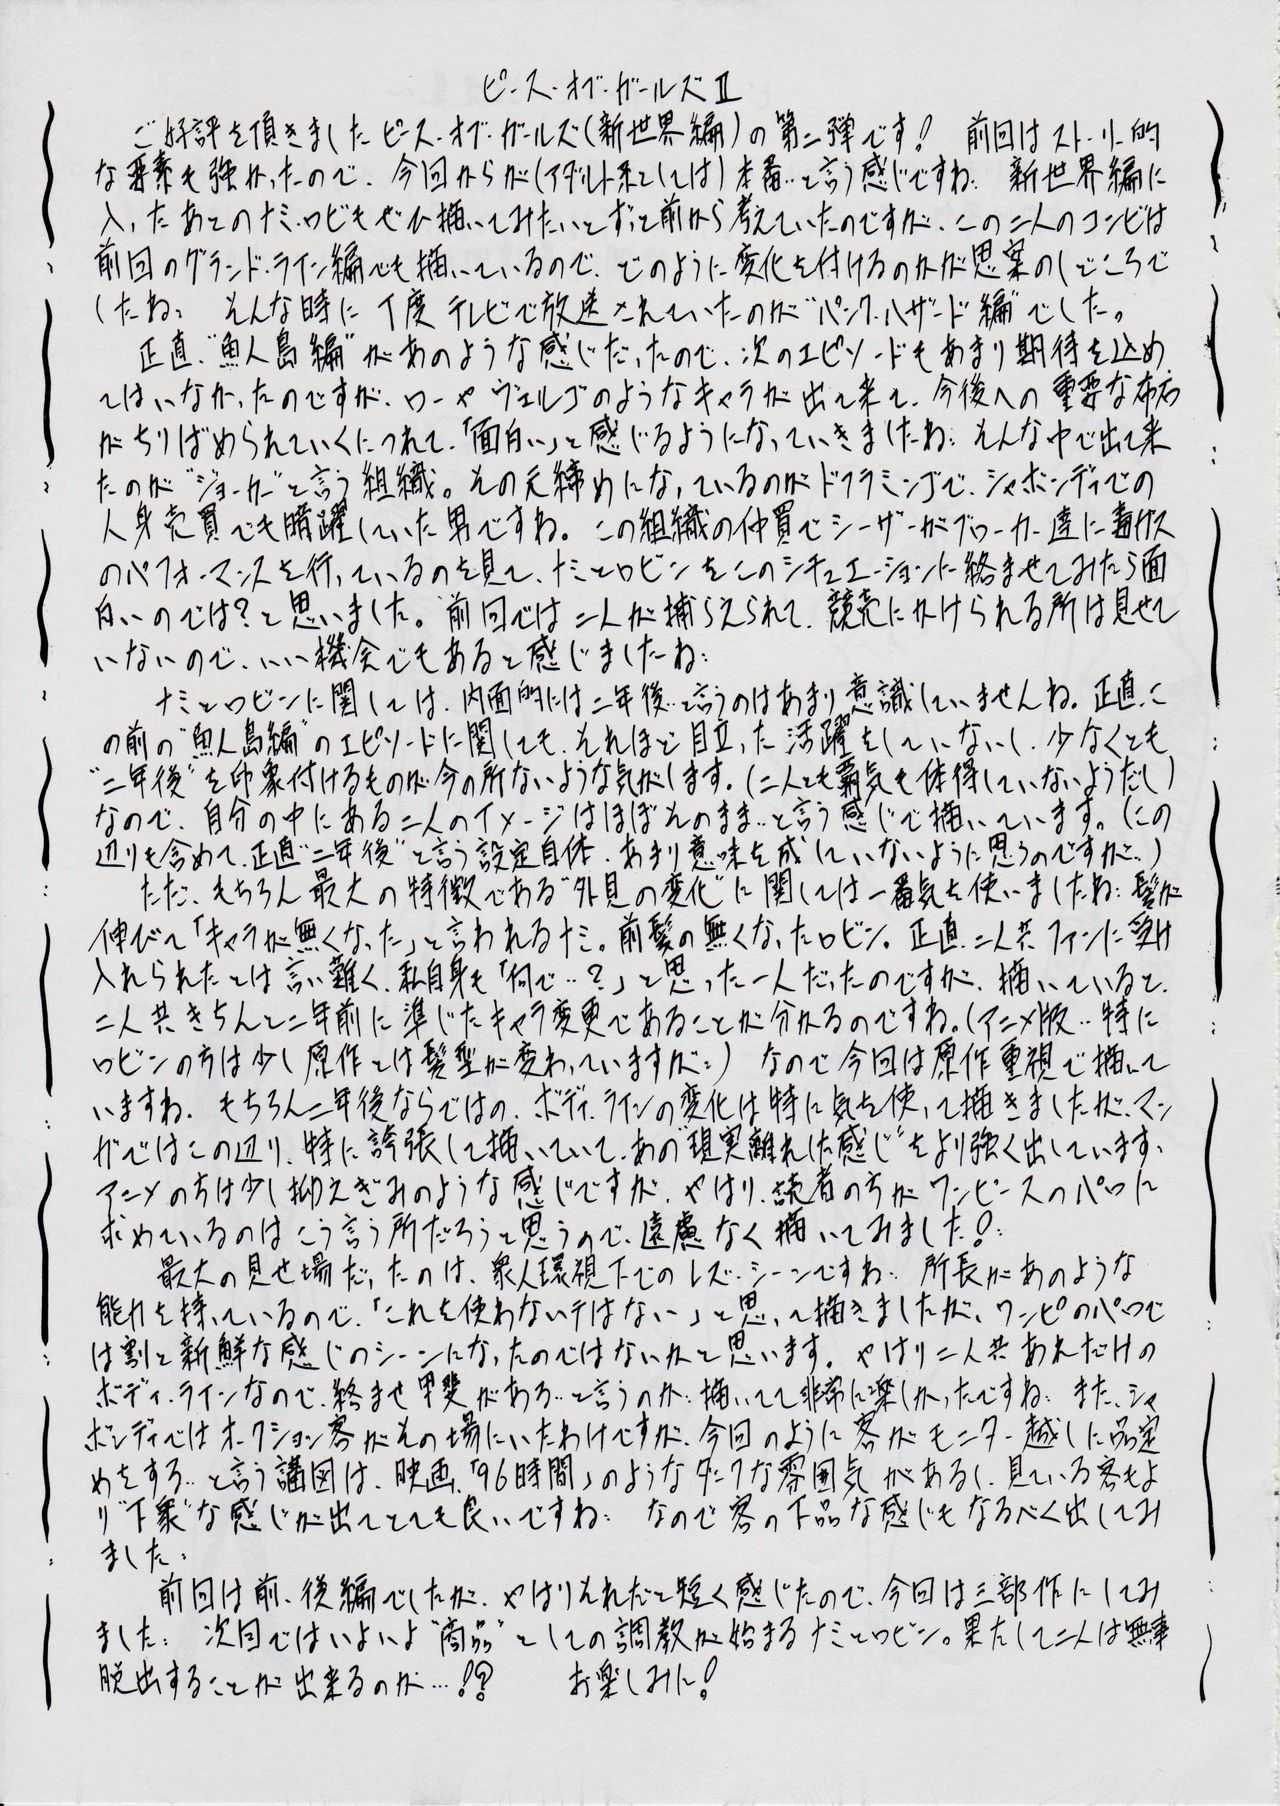 ピース・オブ・ガールズⅡ
ご好評を頂きましたピース・オブ・ガールズ(新世界編)の第二弾です! 前回はストーリー的
な要素も強かったので、今回からが(アダルト系としては)本番‥と言う感じですね‥ 新世界編に
入ったあとのナミ・ロビもぜひ描いてみたいとずっと前から考えていたのですが、この二人のコンビは
前回のグランド・ライン編でも描いているので、どのように変化を付けるのかが思案のしどころで
したね‥ そんな時に丁度テレビで放送されていたのが“パンク・ハザード編”でした。
正直、“魚人島編”があのような感じだったので、次のエピソードもあまり期待を込め
てはいなかったのですが、ローやヴェルゴのようなキャラが出て来て、今後への重要な布石
がちりばめられていくにつれて、「面白い」と感じるようになっていきましたね‥ そんな中で出て来
たのが“ジョーカー”と言う組織。その元締めになっているのがドフラミンゴで、シャボンディでの
人身売買でも暗躍していた男ですね。この組織の仲買でシーザーがブローカー達に毒ガス
のパフォーマンスを行っているのを見て、ナミとロビンをこのシチュエーションに絡ませてみたら面
白いのでは?と思いました。前回では二人が捕らえられて、競売にかけられる所は見せて
いないので、いい機会でもあると感じましたね‥
ナミとロビンに関しては、内面的には二年後‥と言うのはあまり意識していませんね。正直、こ
の前の“魚人島編”のエピソードに関しても、それほど目立った活躍をしていないし、少なくとも
“二年後”を印象付けるものが今の所ないような気がします。(二人とも覇気も体得していないようだし)
なので、自分の中にある二人のイメージはほぼそのまま‥と言う感じで描いています。(この
辺りも含めて、正直“二年後”と言う設定自体、あまり意味を成していないように思うのですが‥)
ただ、もちろん最大の特徴である“外見の変化”に関しては一番気を使いましたね‥髪が
伸びて「キャラが無くなった」と言われるナミ。前髪の無くなったロビン。正直、二人共ファンに受け
入れられたとは言い難く、私自身も「何で‥?」と思った一人だったのですが、描いていると、
二人共きちんと二年前に準じたキャラ変更であることが分かるのですね。(アニメ版‥特に
ロビンの方は少し原作とは髪型が変わっていますが‥) なので今回は原作重視で描いて
いますね。もちろん二年後ならではの、ボディ・ラインの変化は特に気を使って描きましたが、マン
ガではこの辺り、特に誇張して描いていて、あの“現実離れした感じ”をより強く出しています‥
アニメの方は少し抑えぎみのような感じですが、やはり、読者の方がワンピースのパロに
求めているのはこう言う所だろうと思うので、遠慮なく描いてみました!‥
最大の見せ場だったのは、衆人環視下でのレズ・シーンですね‥ 所長があのような
能力を持っているので、「これを使わないテはない」と思って描きましたが、ワンピのパロで
は割と新鮮な感じのシーンになったのではないかと思います。やはり二人共あれだけの
ボディ・ラインなので、絡ませ甲斐がある‥と言うのか‥描いてて非常に楽しかったですね‥ また、シャ
ボンディではオークション客がその場にいたわけですが、今回のように客がモニター越しに品定
めをする‥と言う構図は、映画、「96時間」のようなダークな雰囲気があるし、見ている客もよ
り“下衆”な感じが出てとても良いですね‥ なので客の下品な感じもなるべく出してみ
ました‥
前回は前、後編でしたが、やはりそれだと短く感じたので、今回は三部作にしてみ
ました‥ 次回ではいよいよ“商品”としての調教が始まるナミとロビン。果たして二人は無事
脱出することが出来るのか…!? お楽しみに!